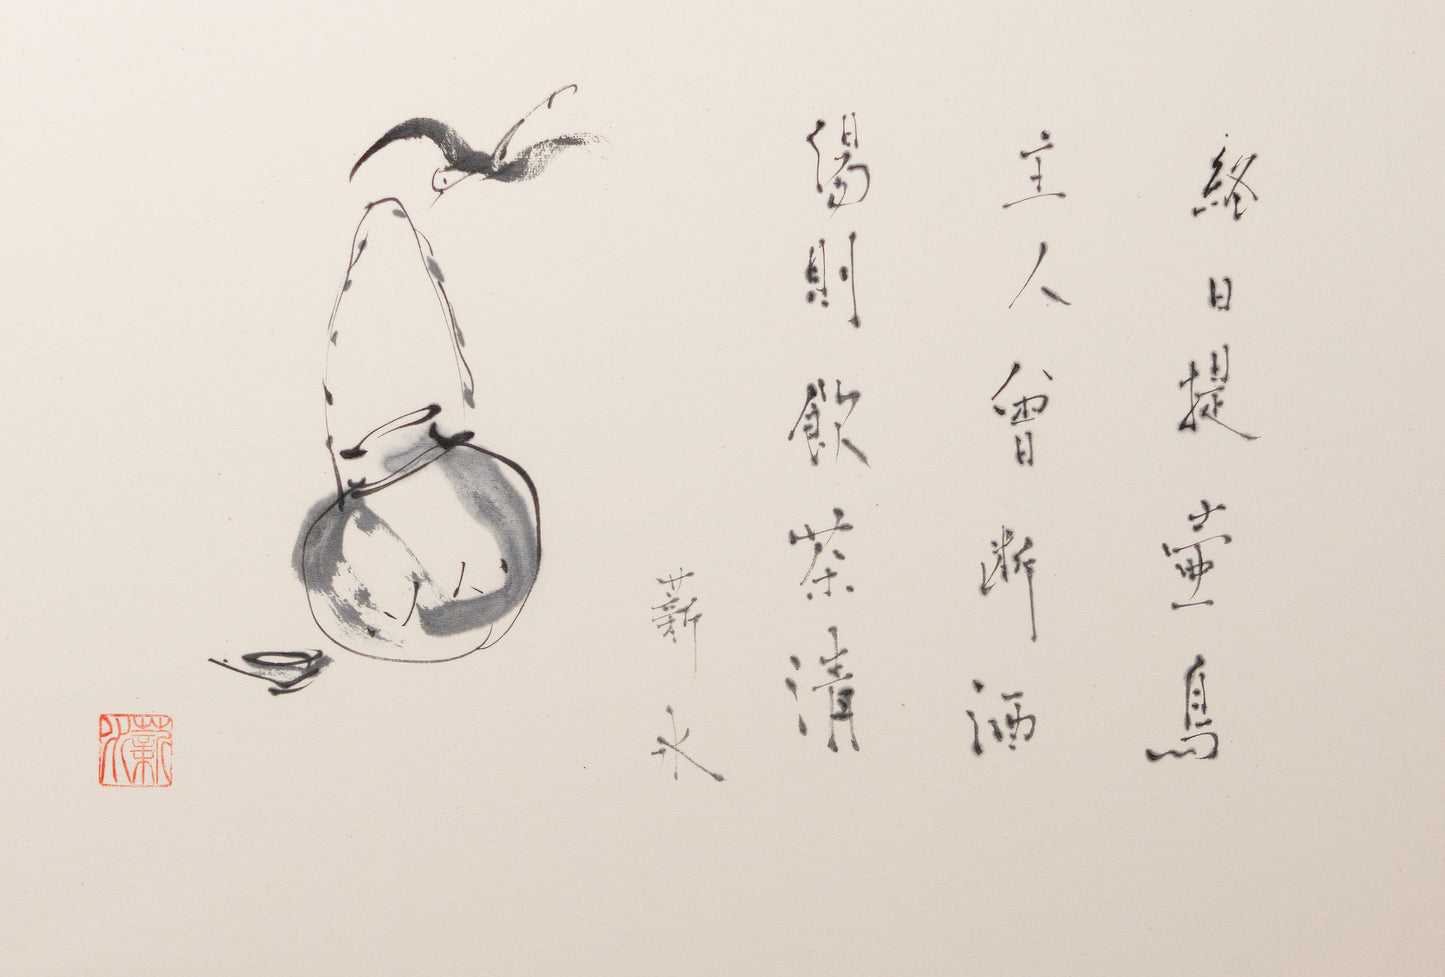 終日提壺鳥
主人曾断酒
傷則飲茶清
薪水
薪水